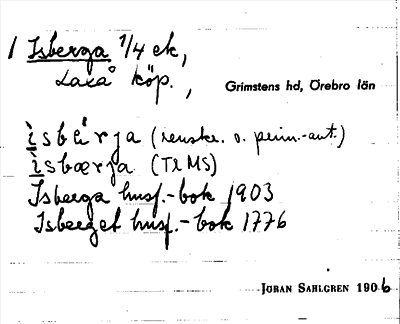 1 Isberga 1/4 ek,
Laxå köp.,
Grimstens hd, Örebro län
isbærja (renskr. o. prim.-ant.)
isbærja (TRMS)
Isberga husf.-bok 1903
Isberget husf.-bok 1776
JÖRAN SAHLGREN 1906